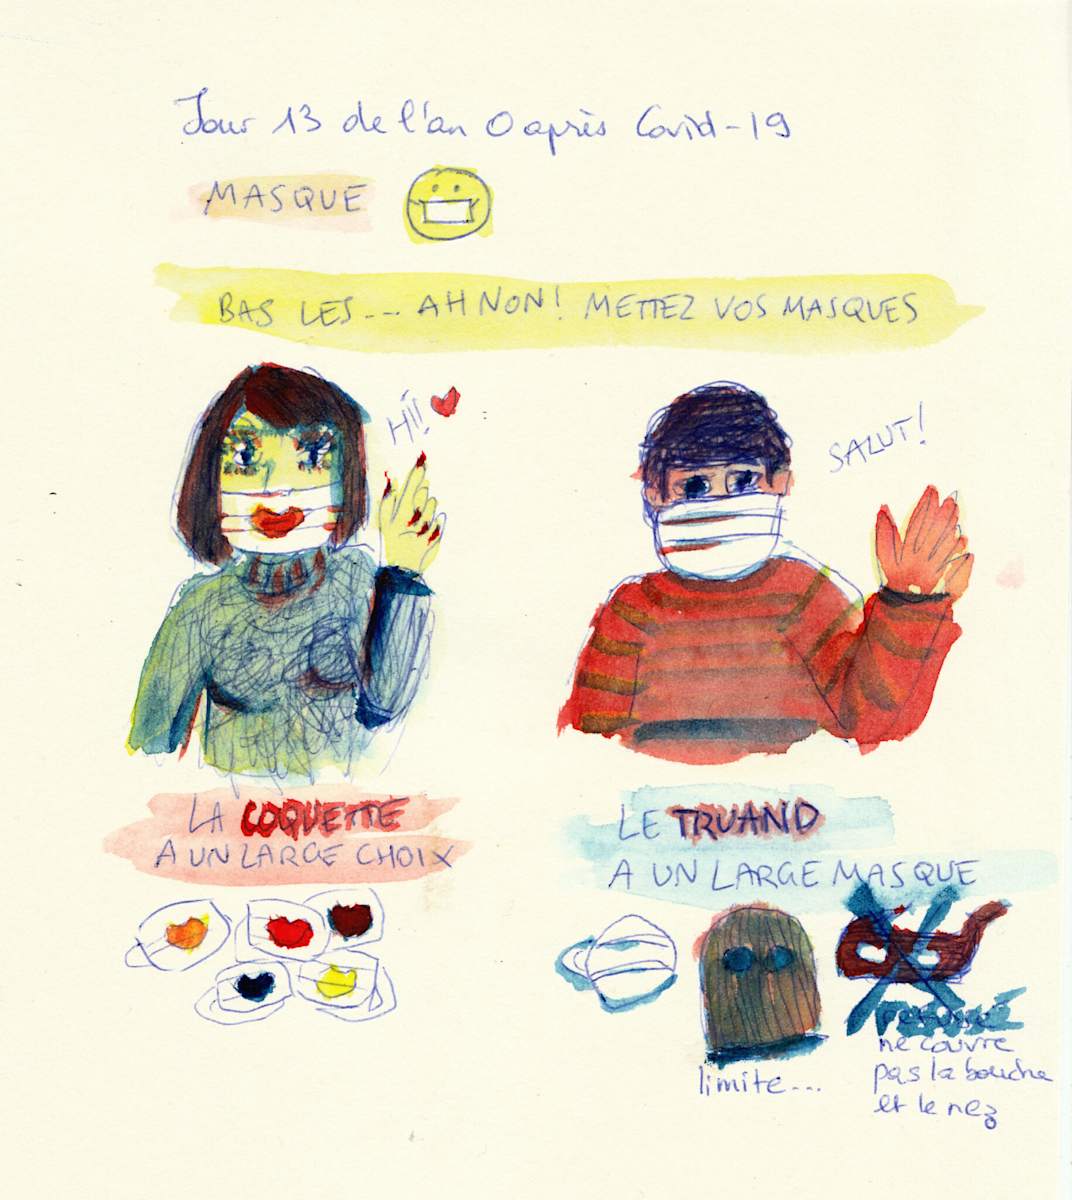 Jour 13 de l'an 0 après Covid-19
MASQUE
BAS LES... AH NON! METTEZ VOS MASQUES
HI!
SALUT!
LA COQUETTE
A UN LARGE CHOIX
LE TRUAND
A UN LARGE MASQUE
limite...
refusé
ne couvre
pas la bouche
et le nez